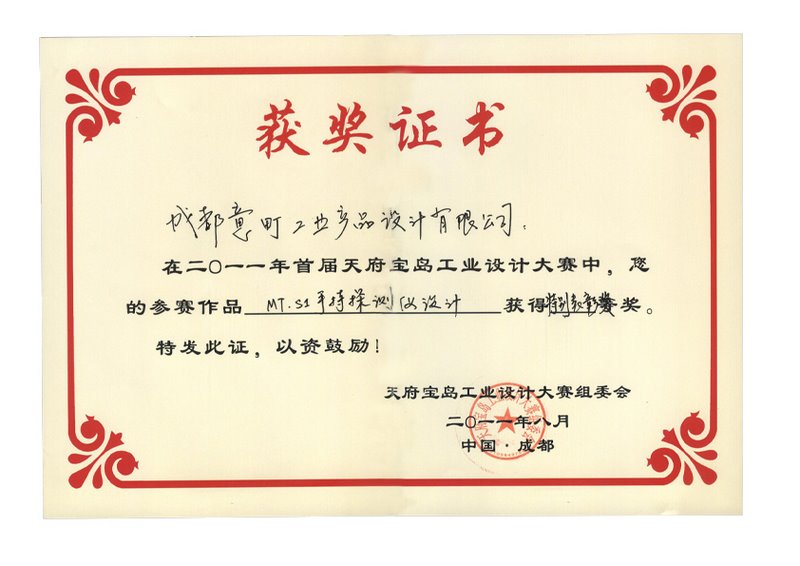 获奖证书
成都意町工业产品设计有限公司:
在二〇一一年首届天府宝岛工业设计大赛中，您
的参赛作品 MT.S1手持探测仪设计 获得特别表彰奖。
特发此证，以资鼓励！
天府宝岛工业设计大赛组委会
二〇一一年八月
中国·成都